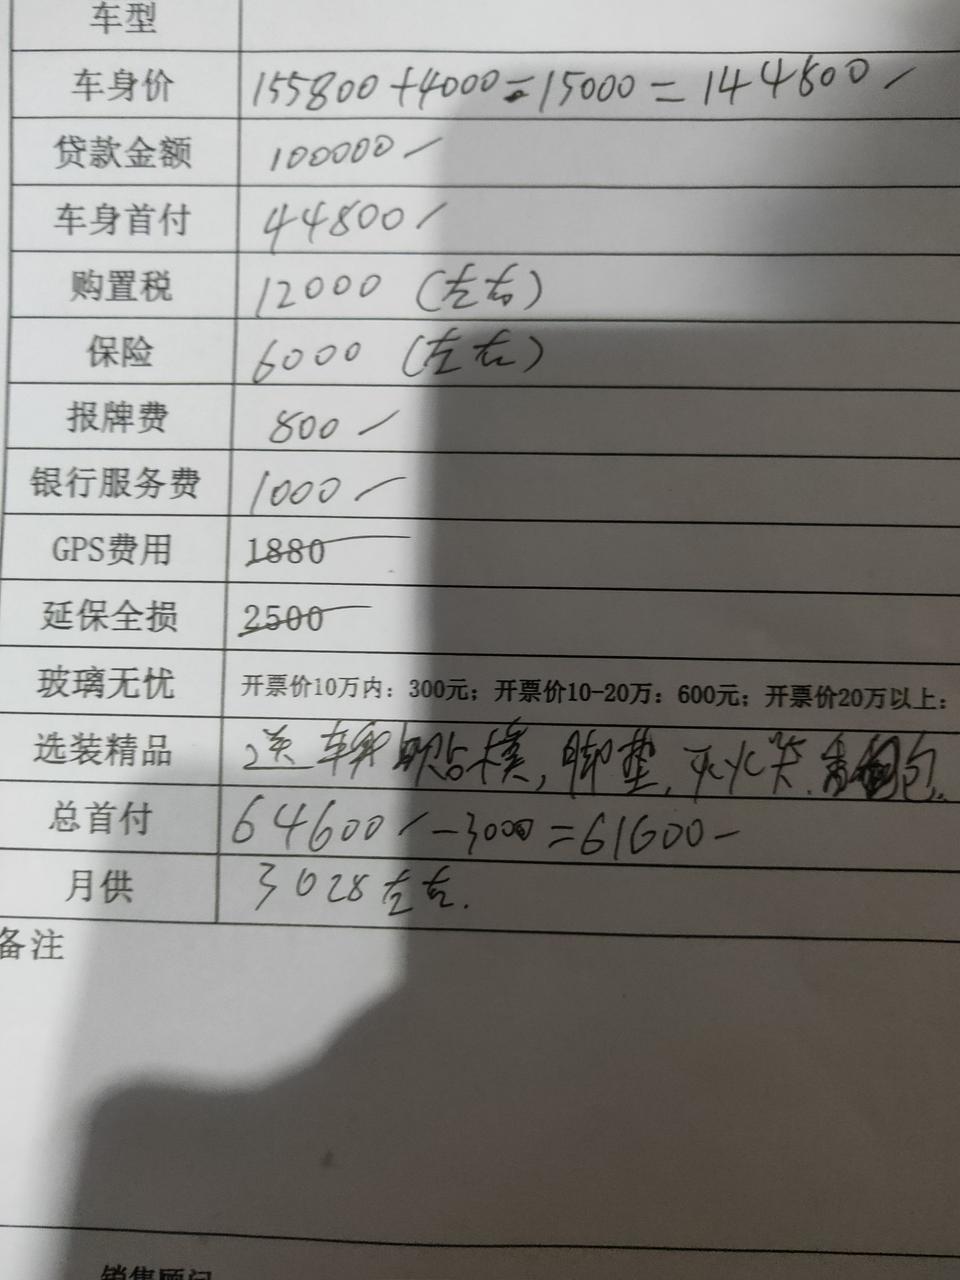 车型
车身价 155800+4000-15000=144800
贷款金额 100000
车身首付 44800
购置税 12000 (左右)
保险 6000 (左右)
报牌费 800
银行服务费 1000
GPS费用 1880
延保全损 2500
玻璃无忧 开票价10万内：300元；开票价10-20万：600元；开票价20万以上：
选装精品 送 车 贴膜，脚垫，灭火 包
总首付 64600-3000=61600
月供 3028左右.
备注
销售顾问